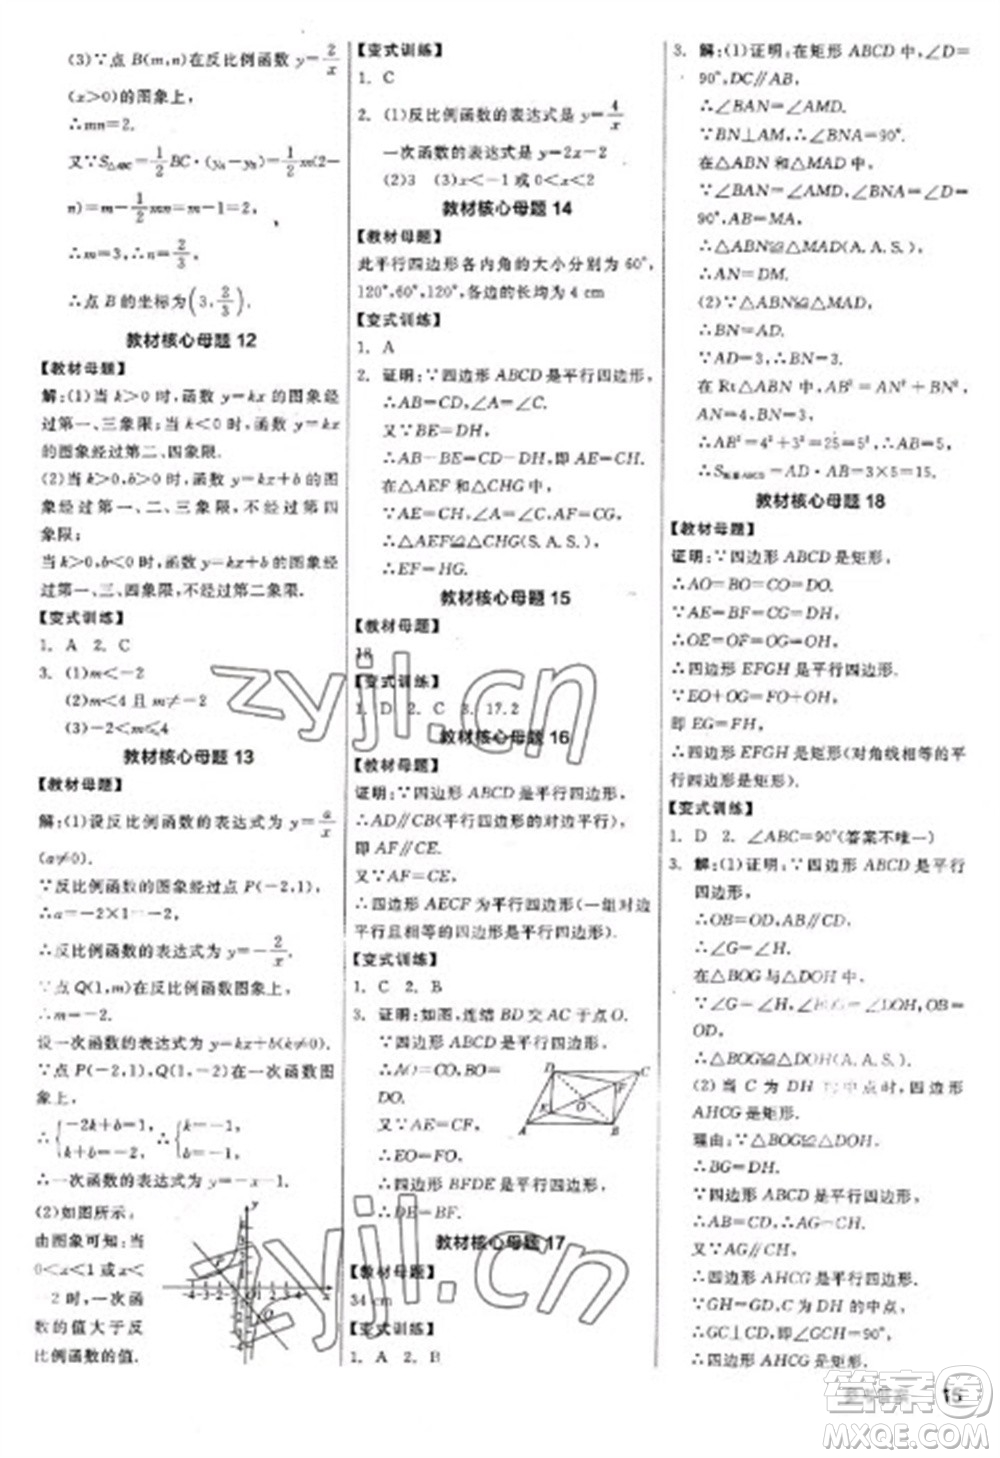 (3)∵点 B(m,n)在反比例函数 y=2/x
(x>0)的图象上,
∴mn=2.
又∵S△ABC=1/2BC·(yA-yB)=1/2m(2-
n)=m-1/2mn=m-1/2×2=2,
∴m=3,∴n=2/3,
∴点 B 的坐标为(3,2/3).
教材核心母题 12
【教材母题】
解:(1)当 k>0 时,函数 y=kx 的图象经
过第一、三象限;当 k<0 时,函数 y=kx
的图象经过第二、四象限.
(2)当 k>0,b>0 时,函数 y=kx+b 的图
象经过第一、二、三象限,不经过第四
象限;
当 k>0,b<0 时,函数 y=kx+b 的图象经
过第一、三、四象限,不经过第二象限.
【变式训练】
1. A 2. C
3. (1)m<-2
(2)m<4 且 m≠-2
(3)-2<m≤4
教材核心母题 13
【教材母题】
解:(1)设反比例函数的表达式为 y=a/x
(a≠0).
∵反比例函数的图象经过点 P(-2,1),
∴a=-2×1=-2,
∴反比例函数的表达式为 y=-2/x.
∵点 Q(1,m)在反比例函数图象上,
∴m=-2.
设一次函数的表达式为 y=kx+b(k≠0).
∵点 P(-2,1),Q(1,-2)在一次函数图
象上,
∴{-2k+b=1, k+b=-2, ∴{k=-1, b=-1,
∴一次函数的表达式为 y=-x-1.
(2)如图所示,
由图象可知:当
0<x<1 或 x<
-2 时,一次函
数的值大于反
比例函数的值.
【变式训练】
1. C
2. (1)反比例函数的表达式是 y=4/x
一次函数的表达式是 y=2x-2
(2)3 (3)x<-1 或 0<x<2
教材核心母题 14
【教材母题】
此平行四边形各内角的大小分别为 60°,
120°,60°,120°,各边的长均为 4 cm
【变式训练】
1. A
2. 证明:∵四边形 ABCD 是平行四边形,
∴AB=CD,∠A=∠C.
又∵BE=DH,
∴AB-BE=CD-DH,即 AE=CH.
在△AEF 和△CHG 中,
∵AE=CH,∠A=∠C,AF=CG,
∴△AEF≌△CHG(S.A.S.),
∴EF=HG.
教材核心母题 15
【教材母题】
18
【变式训练】
1. D 2. C 3. 17.2
教材核心母题 16
【教材母题】
证明:∵四边形 ABCD 是平行四边形,
∴AD∥CB(平行四边形的对边平行),
即 AF∥CE.
又∵AF=CE,
∴四边形 AECF 为平行四边形(一组对边
平行且相等的四边形是平行四边形).
【变式训练】
1. C 2. B
3. 证明:如图,连结 BD 交 AC 于点 O.
∵四边形 ABCD 是平行四边形,
∴AO=CO,BO=
DO.
又∵AE=CF,
∴EO=FO.
∴四边形 BFDE 是平行四边形,
∴DE=BF.
教材核心母题 17
【教材母题】
34 cm
【变式训练】
1. A 2. B
3. 解:(1)证明:在矩形 ABCD 中,∠D=
90°,DC∥AB,
∴∠BAN=∠AMD.
∵BN⊥AM,∴∠BNA=90°.
在△ABN 和△MAD 中,
∵∠BAN=∠AMD,∠BNA=∠D=
90°,AB=MA,
∴△ABN≌△MAD(A.A.S.),
∴AN=DM.
(2)∵△ABN≌△MAD,
∴BN=AD.
∵AD=3,∴BN=3.
在 Rt△ABN 中,AB²=AN²+BN²,
AN=4,BN=3,
∴AB²=4²+3²=25,∴AB=5,
∴S矩形ABCD=AD·AB=3×5=15.
教材核心母题 18
【教材母题】
证明:∵四边形 ABCD 是矩形,
∴AO=BO=CO=DO.
∵AE=BF=CG=DH,
∴OE=OF=OG=OH,
∴四边形 EFGH 是平行四边形.
∵EO+OG=FO+HO,
即 EG=FH,
∴四边形 EFGH 是矩形(对角线相等的平
行四边形是矩形).
【变式训练】
1. D 2. ∠ABC=90°(答案不唯一)
3. 解:(1)证明:∵四边形 ABCD 是平行
四边形,
∴OB=OD,AD∥CB,
∴∠G=∠H.
在△BOG 与△DOH 中,
∵∠G=∠H,∠BOG=∠DOH,OB=
OD,
∴△BOG≌△DOH(A.A.S.).
(2)当 C 为 DH 的中点时,四边形
AHCG 是矩形.
理由:∵△BOG≌△DOH,
∴BG=DH.
∵四边形 ABCD 是平行四边形,
∴AD=CB,∴AG=CH.
又∵AG∥CH,
∴四边形 AHCG 是平行四边形.
∵GH=GD,C 为 DH 的中点,
∴GC⊥DH,∴∠GCH=90°,
∴四边形 AHCG 是矩形.
15
zyjl.cn
zyjl.cn
答案圈
MXQE.COM